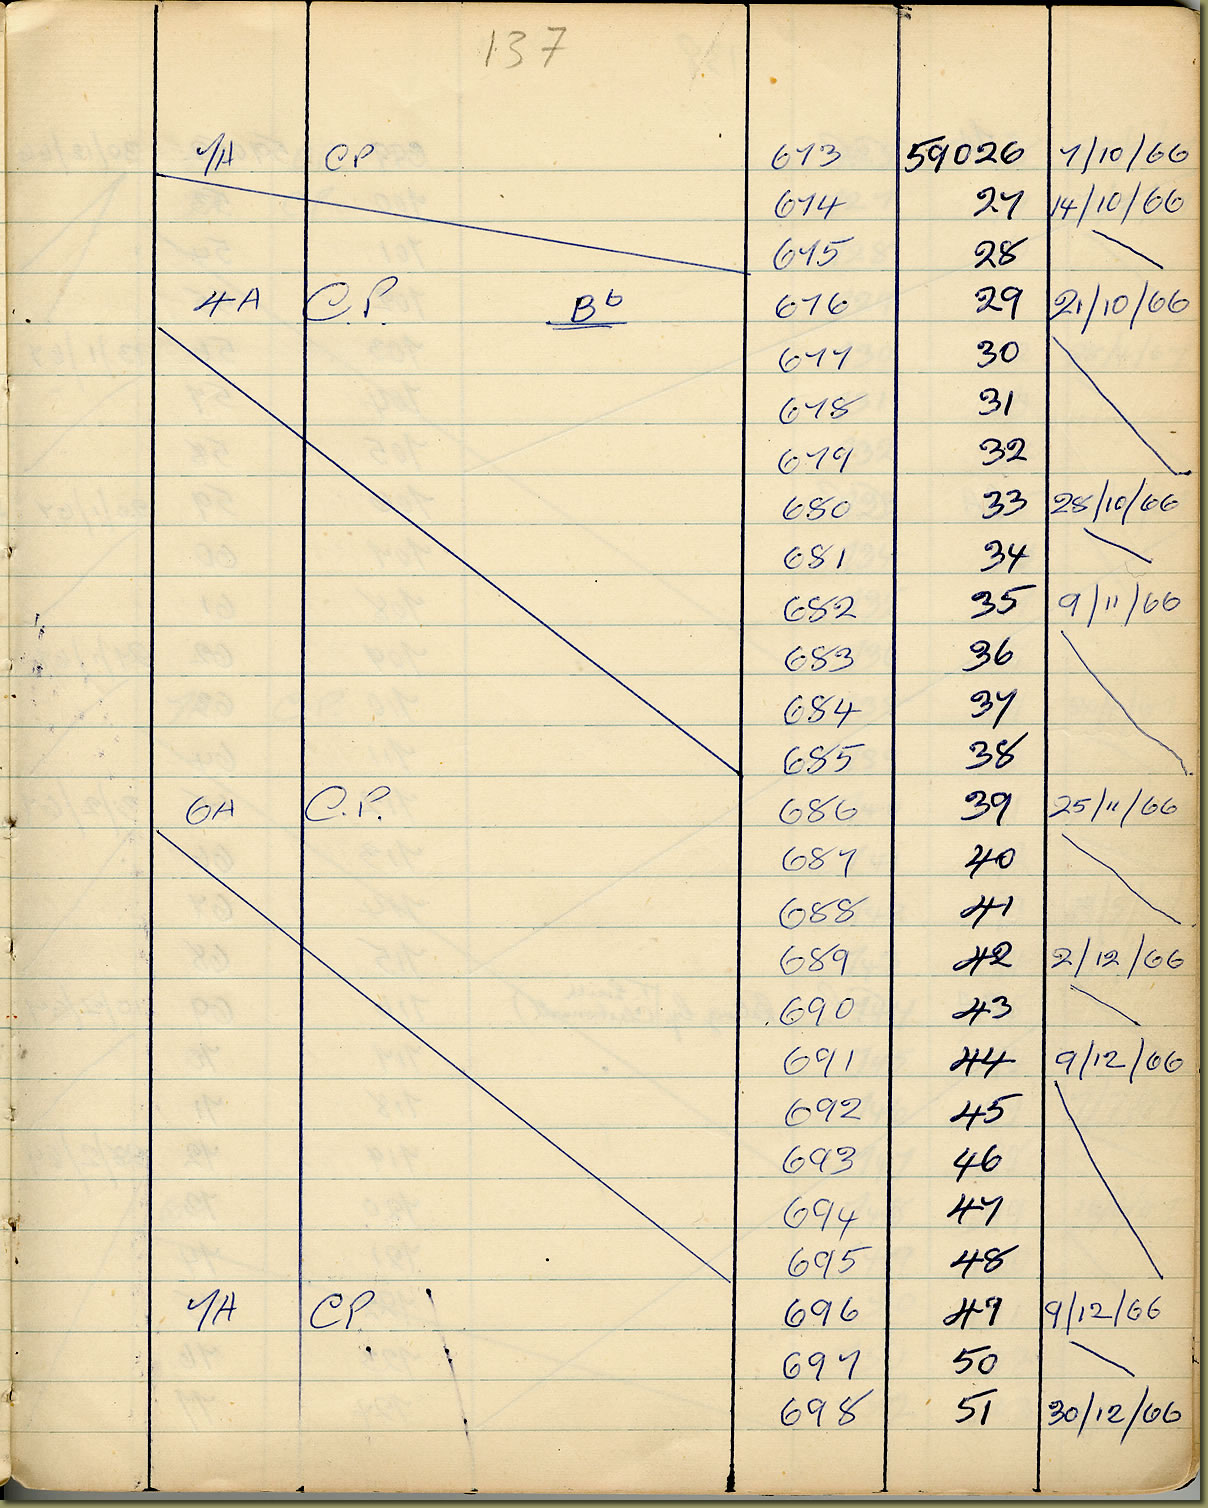 137
7A CP 673 59026 7/10/66
674 27 14/10/66
675 28
4A C.P. B6 676 29 21/10/66
677 30
678 31
679 32
680 33 28/10/66
681 34
682 35 9/11/66
683 36
684 37
685 38
6A C.P. 686 39 25/11/66
687 40
688 41
689 42 2/12/66
690 43
691 44 9/12/66
692 45
693 46
694 47
695 48
7A CP 696 49 9/12/66
697 50
698 51 30/12/66